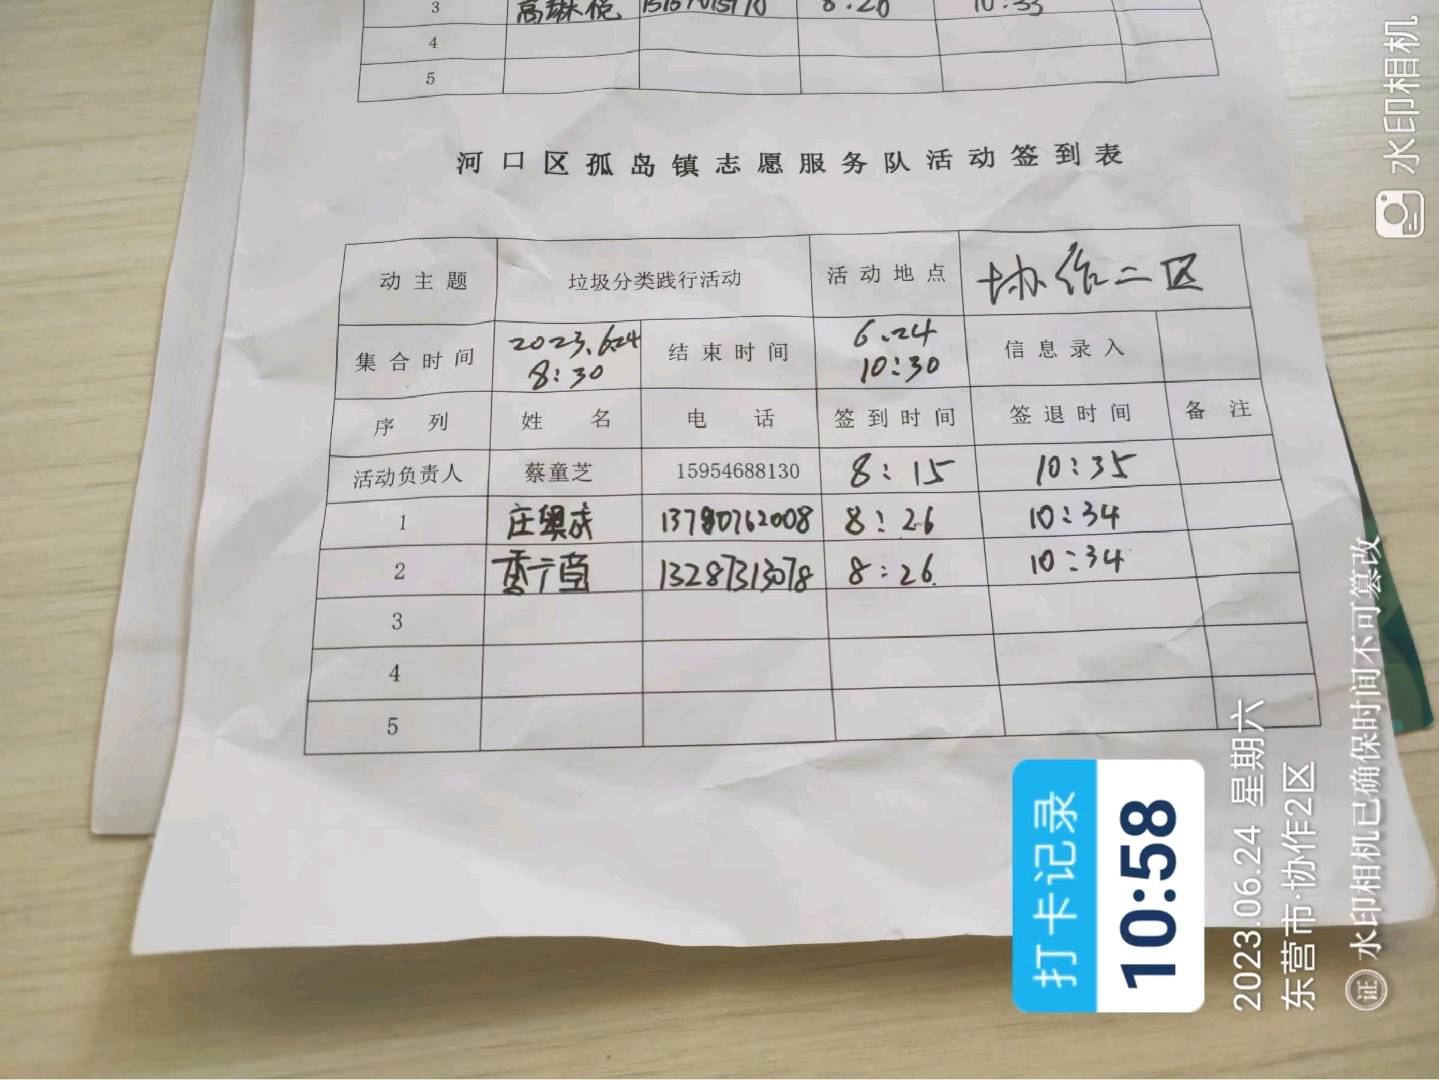 3 8:20 10:33
4
5
河口区孤岛镇志愿服务队活动签到表
动主题 垃圾分类践行活动 活动地点 协作二区
集合时间 2023.6.24 8:30 结束时间 6.24 10:30 信息录入
序列 姓名 电话 签到时间 签退时间 备注
活动负责人 蔡童芝 15954688130 8:15 10:35
1 13780762008 8:26 10:34
2 13287313078 8:26 10:34
3
4
5
打卡记录
10:58
2023.06.24 星期六
东营市·协作2区
证 水印相机已确保时间不可篡改
水印相机